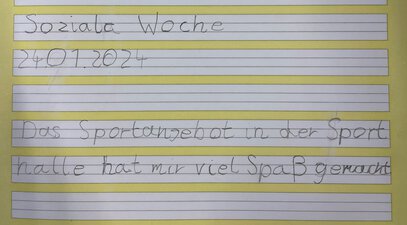 Soziala Woche
24.01.2024
Das Sportangebot in der Sport
halle hat mir viel Spaß gemacht